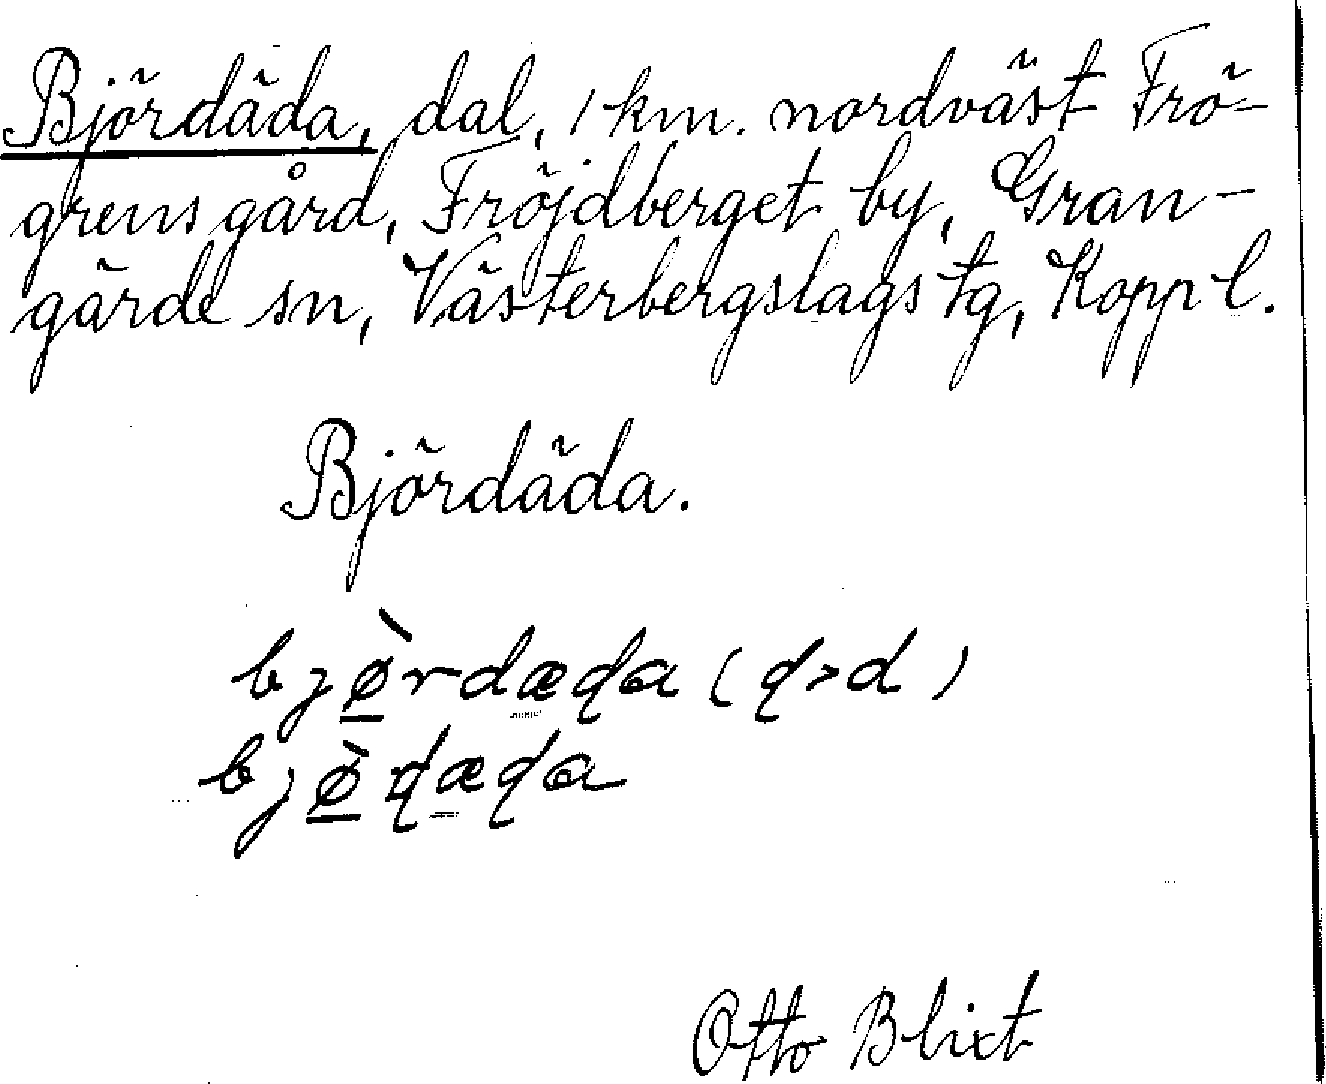 Björdäda, dal, 1 km. nordväst Frö-
grens gård, Fröjdberget by, Gran-
gärde sn, Västerbergslags tg, Kopp l.
Björdäda.
bjø̀rdæɖa (ɖ>d)
bjø̀ɖæɖa
Otto Blixt